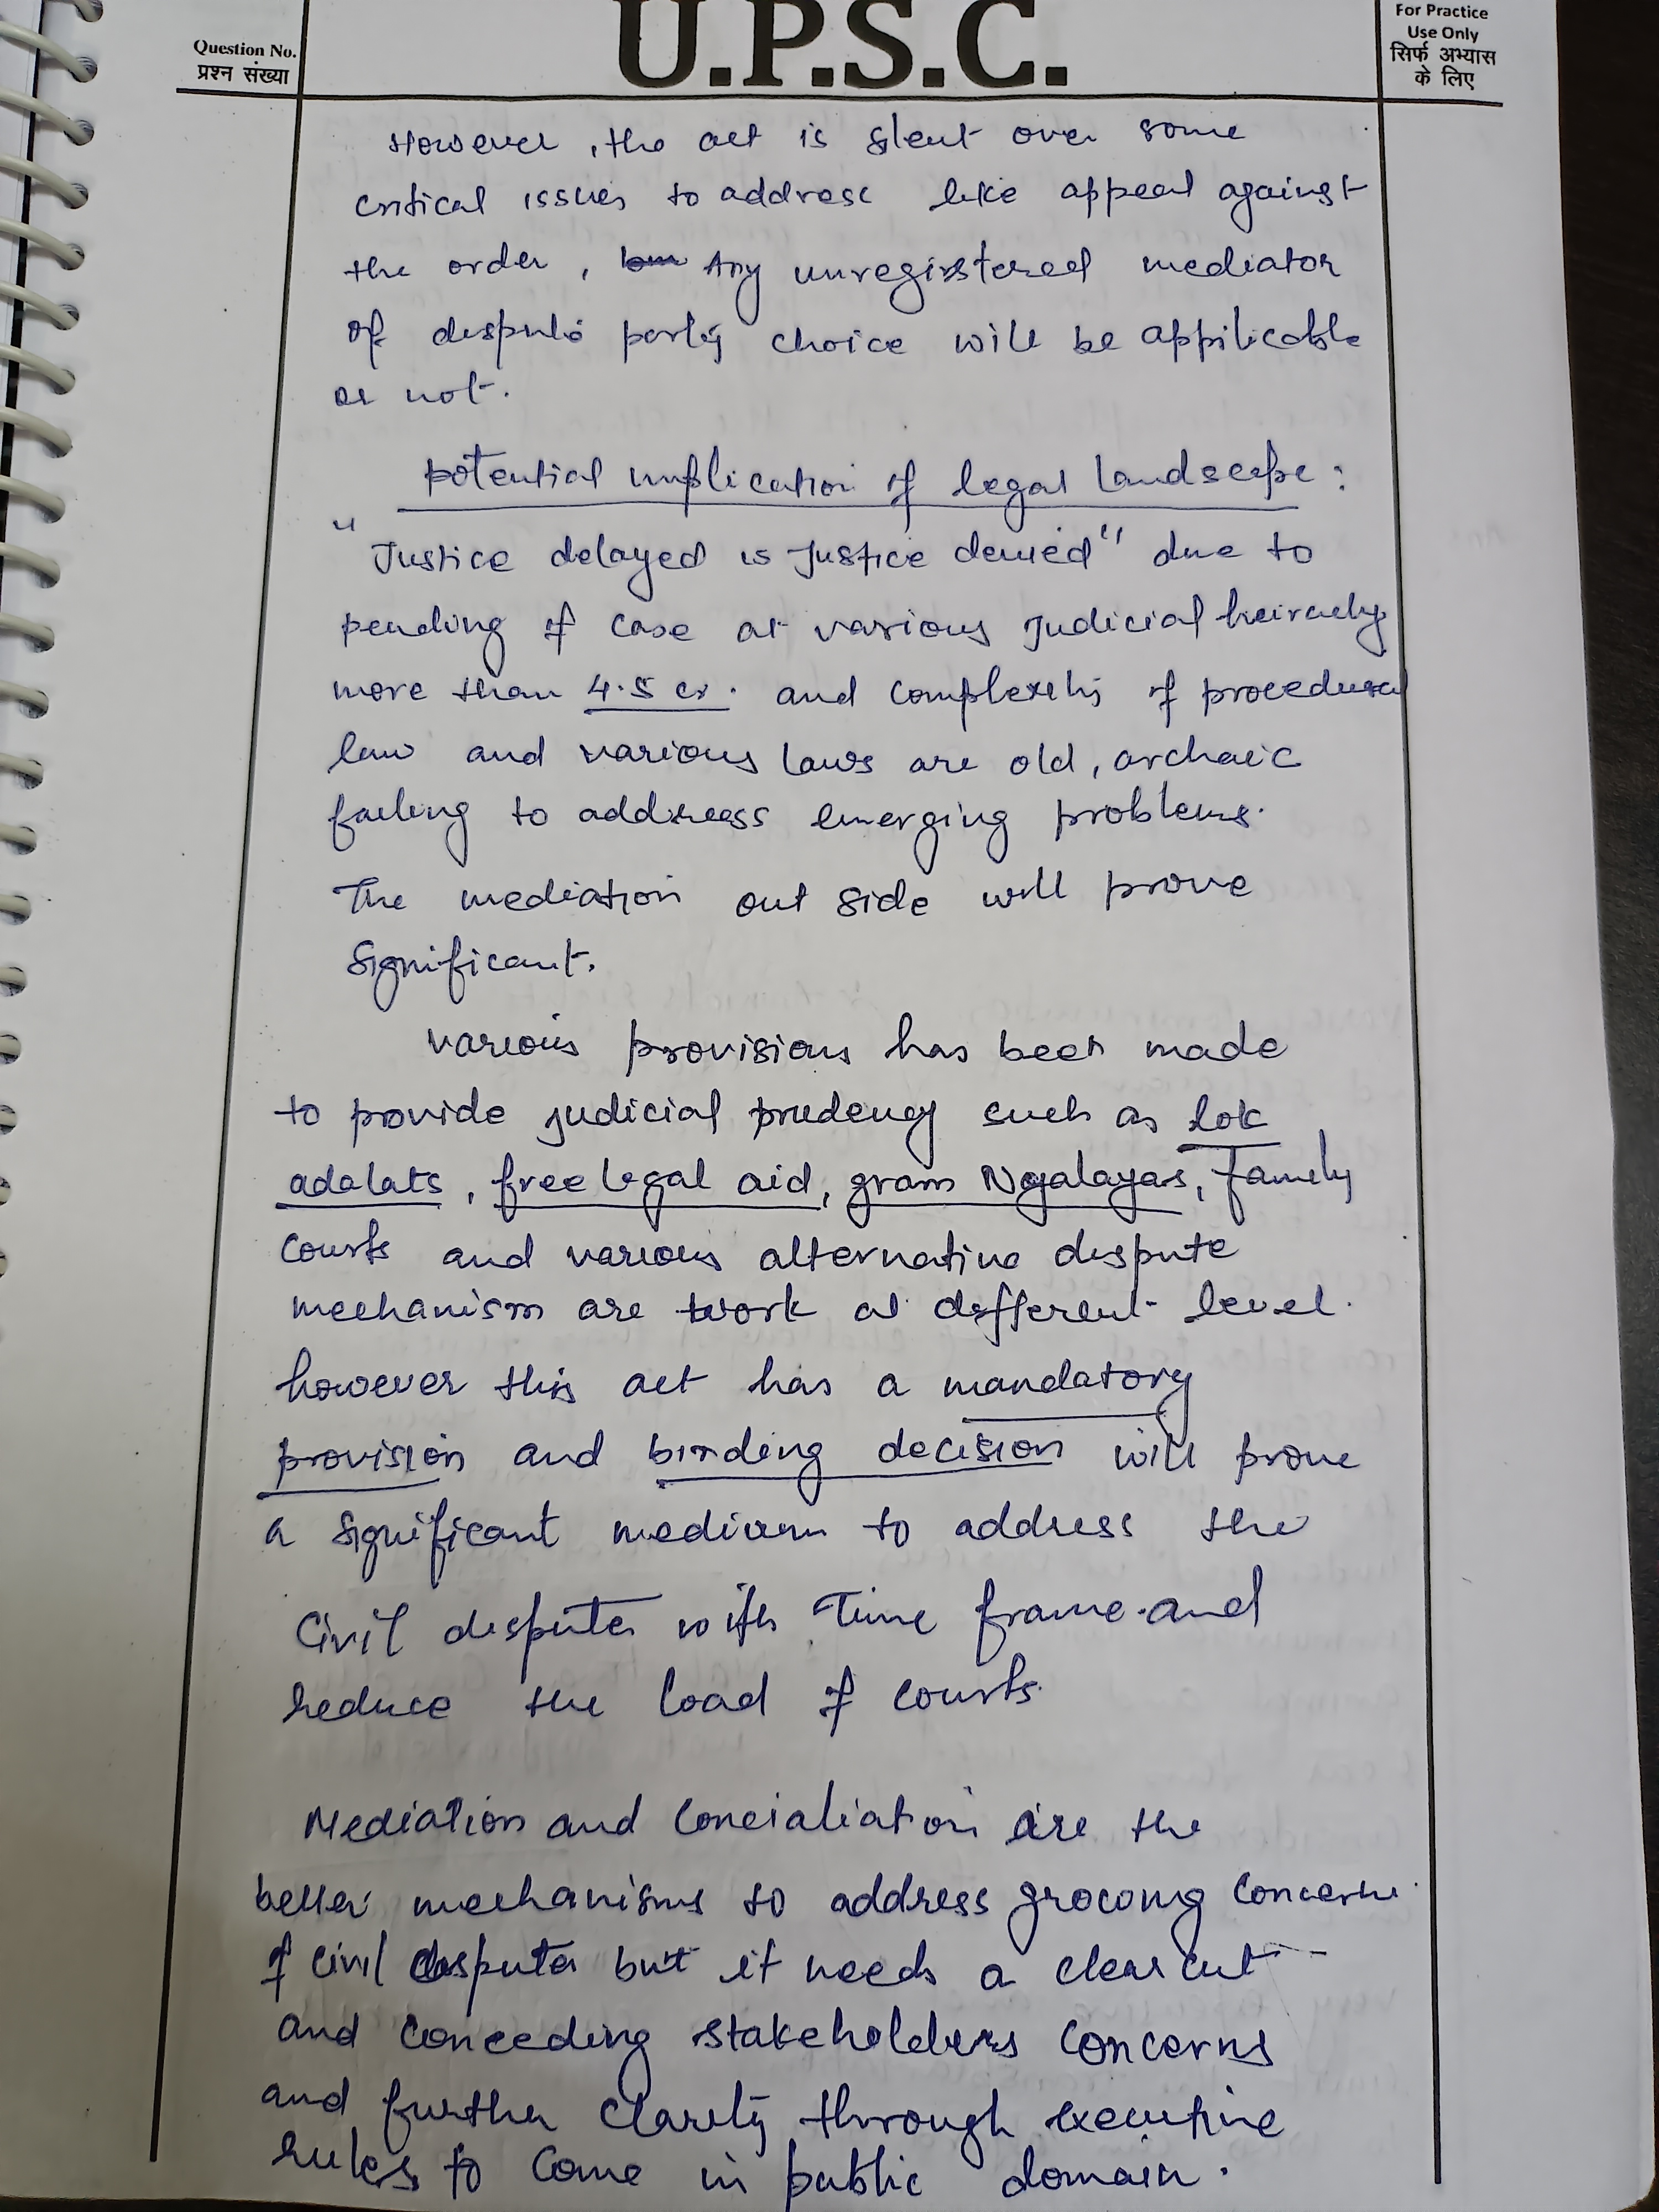 U.P.S.C.
Question No.
प्रश्न संख्या
For Practice
Use Only
सिर्फ अभ्यास
के लिए
However, the act is silent over some
critical issues to address like appeal against
the order, Any unregisterered mediator
of dispute party choice will be appilicable
or not.
Potential implication of legal landscape:
"Justice delayed is Justice denied" due to
pending of case at various Judicial heirarchy
more than 4.5 cr. and complexity of procedural
law and various laws are old, archaic
failing to address emerging problems.
The mediation out side will prove
significant.
various provisions has been made
to provide judicial prudency such as lok
adalats, free legal aid, gram Nyalayas, family
courts and various alternative dispute
mechanism are work at different level.
however this act has a mandatory
provision and binding decision will prove
a significant medium to address the
Civil disputes with Time frame and
reduce the load of courts.
Mediation and Concialiation are the
better mechanisms to address growing concerns
of civil disputes but it needs a clear cut
and conceding stakeholders concerns
and further clarity through executive
rules to come in public domain.